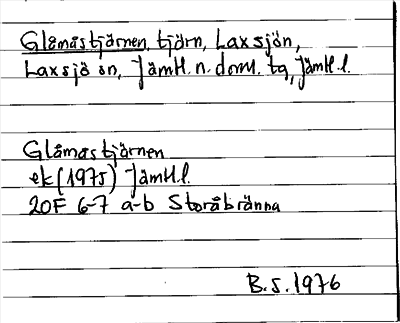 Glåmåstjärnen, tjärn, Laxsjön,
Laxsjö sn, Jämtl. n. doms. tg, Jämtl. l.
Glåmåstjärnen
ek (1975) Jämtl.l.
20F 6-7 a-b Storåbränna
B.S. 1976